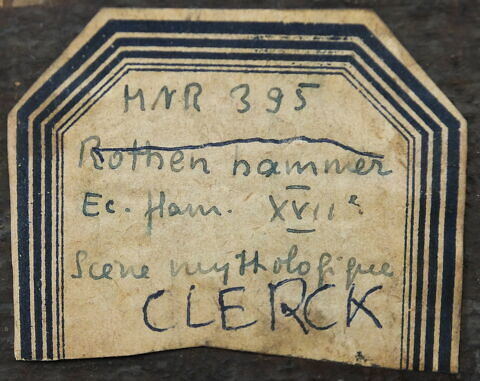 MNR 395
Rothen hammer
Ec. flam. XVIIe
Scène mythologique
CLERCK